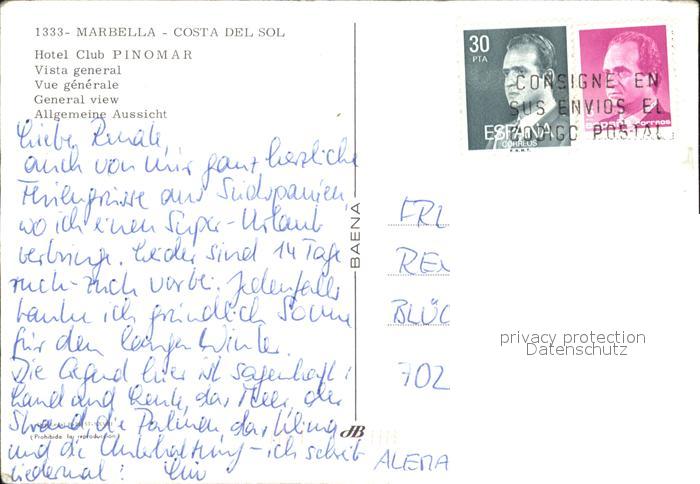 1333- MARBELLA - COSTA DEL SOL
Hotel Club PINOMAR
Vista general
Vue générale
General view
Allgemeine Aussicht
Liebe Renate,
auch von mir ganz herzliche
Feriengrüsse aus Südspanien,
wo ich einen Super-Urlaub
verbringe. Leider sind 14 Tage
ruch-zuch vorbei. Jedenfalls
tanke ich gründlich Sonne
für den langen Winter.
Die Gegend hier ist sagenhaft:
Land und Leute, das Meer, der
Strand, die Palmen, das Klima
und die Unterhaltung - ich schreib
niedernal!
(Prohibida la reproducción)
BAENA
dB
30
PTA
ESPAÑA
CORREOS
F.N.M.T.
CORREOS
CONSIGNE EN
SUS ENVIOS EL
POSTAL
FRL
REN
BLÜC
702
ALEMA
privacy protection
Datenschutz